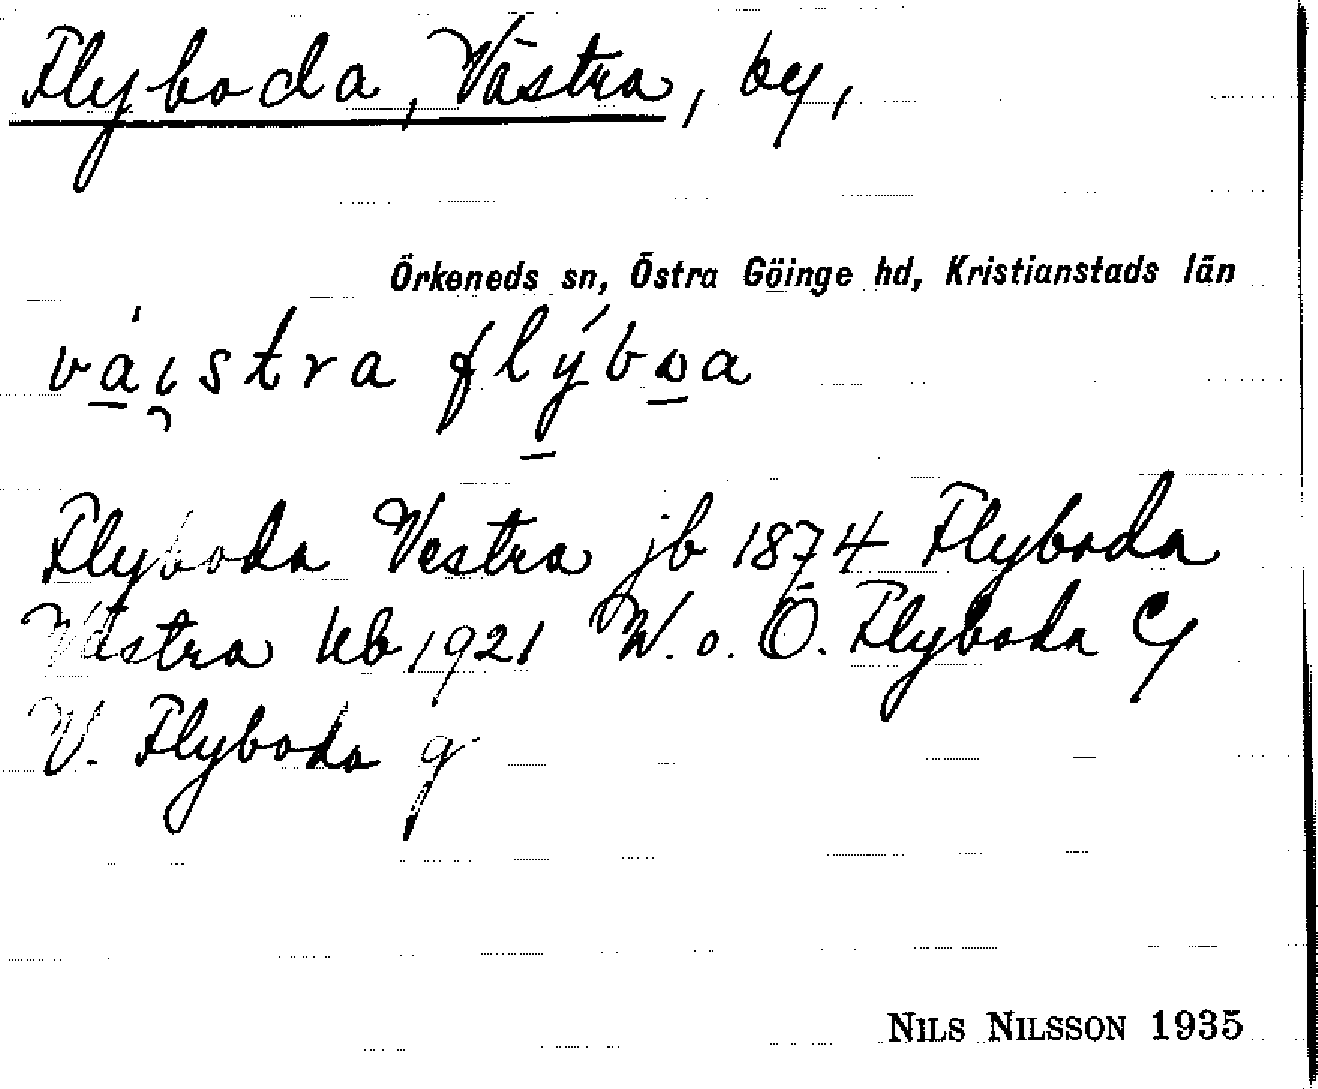 Flyboda, Västra, by,
Örkeneds sn, Östra Göinge hd, Kristianstads län
Flyboda Vestra jb 1874 Flyboda
Västra kb 1921 V. o. Ö. Flyboda
V. Flyboda g
NILS NILSSON 1935